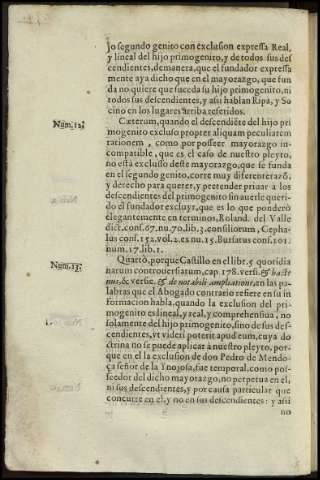 jo segundo genito con exclusion expressa Real,
y lineal del hijo primogenito, y de todos sus descendientes, demanera, que el fundador expressa
mente aya dicho que en el mayorazgo, que fun
da no quiere que suceda su hijo primogenito, ni
todos sus descendientes, y assi hablan Ripa, y So
cino en los lugares arriba referidos.
Num. 12.
Cæterum, quando el descendiẽte del hijo pri
mogenito excluso propter aliquam peculiarem
rationem, como por posseer mayorazgo incompatible, que es el caso de nuestro pleyto,
no está excluso deste mayorazgo, que se funda
en el segundo genito, corre muy diferente razõ,
y derecho para querer, y pretender priuar a los
descendientes del primogenito sin auerse querido el fundador excluyr, que es lo que ponderò
elegantemente en terminos, Roland. del Valle
dict. cons. 67. nu. 70. lib. 3. consiliorum, Cepha
lus cons. 152. vol. 2. ex nu. 15. Bursatus cons. 101.
num. 17. lib. 1.
Num. 13.
Quartò, porque Castillo en el libr. 5. quotidia
narum controuersiarum, cap. 178. vers. & hactenus, & versic. & de notabili ampliatione, en las palabras que el Abogado contrario refiere en su in
formacion habla, quando la exclusion del primogenito es lineal, y real, y comprehensiua, no
solamente del hijo primogenito, sino de sus descendientes, vt videri poterit apud eum, cuya do
ctrina no se puede aplicar a nuestro pleyto, porque en el la exclusion de don Pedro de Mendoça señor de la Ynojosa, fue temporal, como posseedor del dicho mayorazgo, no perpetua en el,
ni sus descendientes, y por causa particular que
concurre en el, y no en sus descendientes: y assi
no